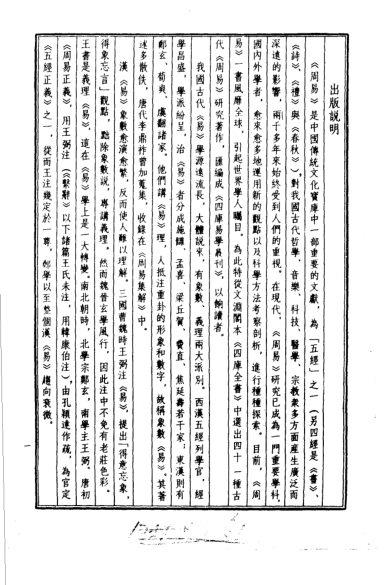 出版説明
《周易》是中國傳統文化寶庫中一部重要的文獻，為「五經」之一（另四經是《書》、
《詩》、《禮》與《春秋》），對我國古代哲學、音樂、科技、醫學、宗教衆多方面産生廣泛而
深遠的影響，兩千多年來始終受到人們的重視。在現代，《周易》研究已成為一門重要學科，
國内外學者，愈來愈多地運用新的觀點以及科學方法考察剖析，進行種種探索。目前，《周
易》一書風靡全球，引起世界學人矚目。為此特從文淵閣本《四庫全書》中選出四十一種古
代《周易》研究著作，匯編成《四庫易學叢刊》，以餉讀者。
我國古代《易》學源遠流長，大體説來，有象數、義理兩大派别。西漢五經列學官，經
學昌盛，學派紛呈，治《易》者分成施讎、孟喜、梁丘賀、費直、焦延壽若干家；東漢則有
鄭玄、荀爽、虞翻諸家，他們講《易》理，人抵注重卦的形象和數字，故稱象數《易》。其著
述多散佚，唐代李鼎祚曾加蒐集，收錄在《周易集解》中。
漢《易》象數愈演愈繁，反而使人難以理解。三國曹魏時王弼注《易》，提出「得意忘象，
得象忘言」觀點，黜除象數説，專講義理。然而魏晉玄學風行，因此注中不免有老莊色彩。
王書是義理《易》，這在《易》學上是一大轉變。南北朝時，北學宗鄭玄，南學主王弼。唐初
《周易正義》，用王弼注（《繫辭》以下諸篇王氏未注，用韓康伯注），由孔穎達作疏，為官定
《五經正義》之一，從而王注幾定於一尊，鄭學以至整個漢《易》趨向衰微。
一